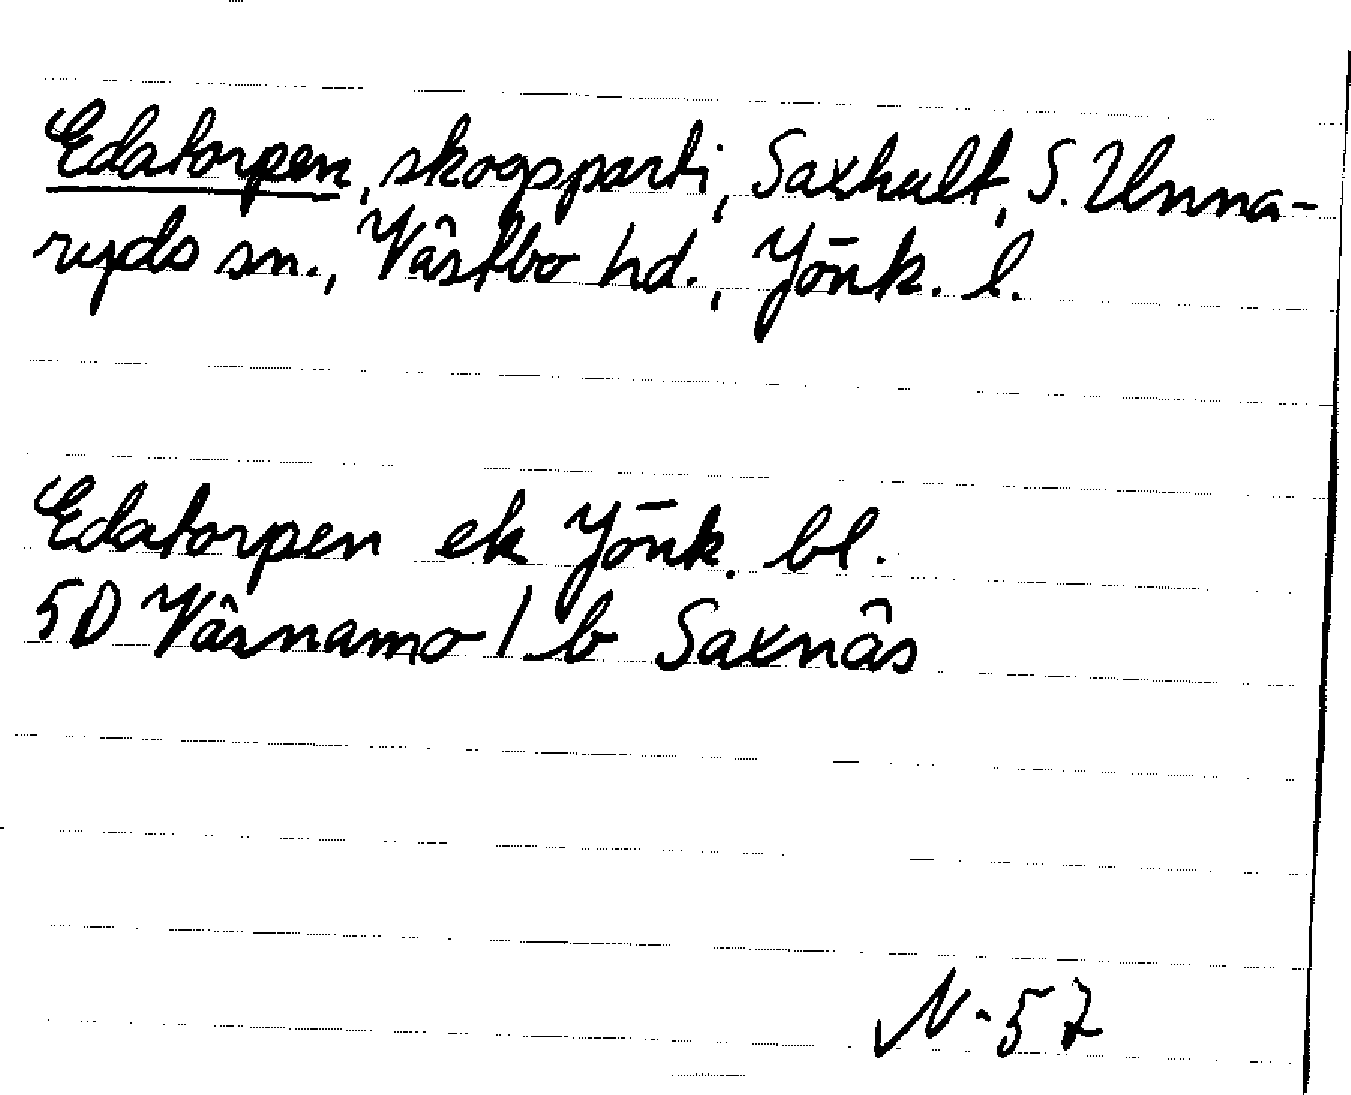 Edatorpen, skogsparti, Saxhult, S. Unna-
ryds sn., Västbo hd., Jönk. l.
Edatorpen ek Jönk. bl.
5D Värnamo 1 b Saxnäs
N-57